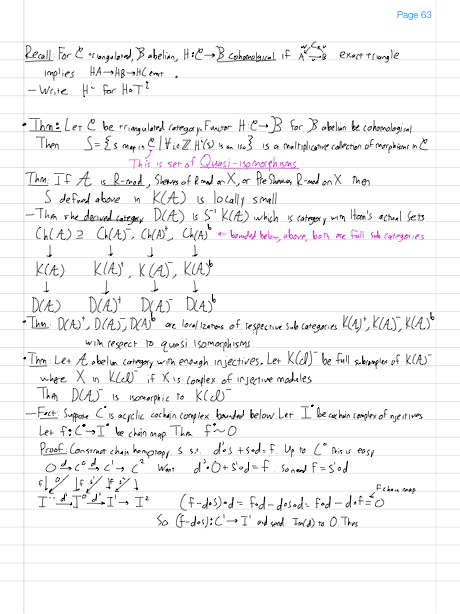 Page 63
Recall: For C triangulated, B abelian, H: C → B cohomological if A → B exact triangle
implies HA → HB → HC exact.
– Write Hⁱ for H∘Tⁱ
• Thm: Let C be triangulated category. Functor H: C → B for B abelian be cohomological
Then S = { s map in C | ∀ i ∈ Z Hⁱ(s) is an iso } is a multiplicative collection of morphisms in C
This is set of Quasi-isomorphisms
Thm: If A is R-mod, Sheaves of R mod on X, or Pre Sheaves R-mod on X then
S defined above in K(A) is locally small
– Then the derived category D(A) is S⁻¹ K(A) which is category with Hom's actual sets
Ch(A) ⊇ Ch(A)⁻, Ch(A)⁺, Ch(A)ᵇ ← bounded below, above, both are full sub categories
↓ ↓ ↓ ↓
K(A) K(A)⁺, K(A)⁻, K(A)ᵇ
↓ ↓ ↓ ↓
D(A) D(A)⁺ D(A)⁻ D(A)ᵇ
• Thm: D(A)⁺, D(A)⁻, D(A)ᵇ are localizations of respective sub categories K(A)⁺, K(A)⁻, K(A)ᵇ
with respect to quasi isomorphisms
• Thm: Let A abelian category with enough injectives. Let K(cl)⁻ be full subcomplex of K(A)⁻
where X in K(cl)⁻ if X is complex of injective modules
Then D(A)⁻ is isomorphic to K(cl)⁻
– Fact: Suppose C• is acyclic cochain complex bounded below. Let I• be cochain complex of injectives
Let f: C• → I• be chain map. Then f ~ 0
Proof: Construct chain homotopy s s.t. d'∘s + s∘d = f. Up to C⁰ this is easy
0 → C⁰ →d C¹ → C² Want d'∘0 + s'∘d = f. So need F = s'∘d
F↓ 0 ↓F s' ↓F s² ↓ F chain map
I⁻¹ →d' I⁰ →d' I¹ → I² (f - d∘s)∘d = f∘d - d∘s∘d = f∘d - d∘f = 0
So (f - d∘s): C¹ → I¹ and send Im(d) to 0. Thus